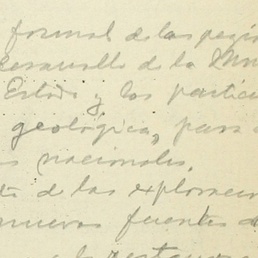 formal de las regio
desarrollo de la Min
Estado y los particu
geológica, para
nacionales.
de las exploracion
nuevas fuentes d